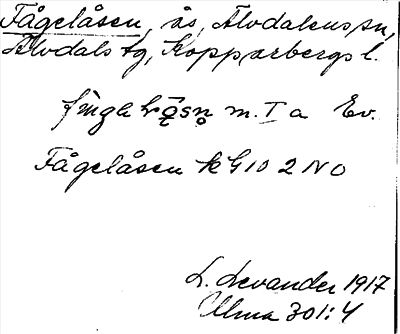 Fågelåsen, ås, Älvdalens sn,
Älvdals tg, Kopparbergs l.
m. I a Ev.
Fågelåsen k G10 2 NO
L. Levander 1917
Ulma 301:4